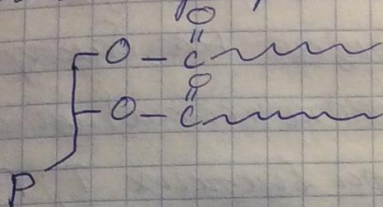 O
O — C
O
O — C
P